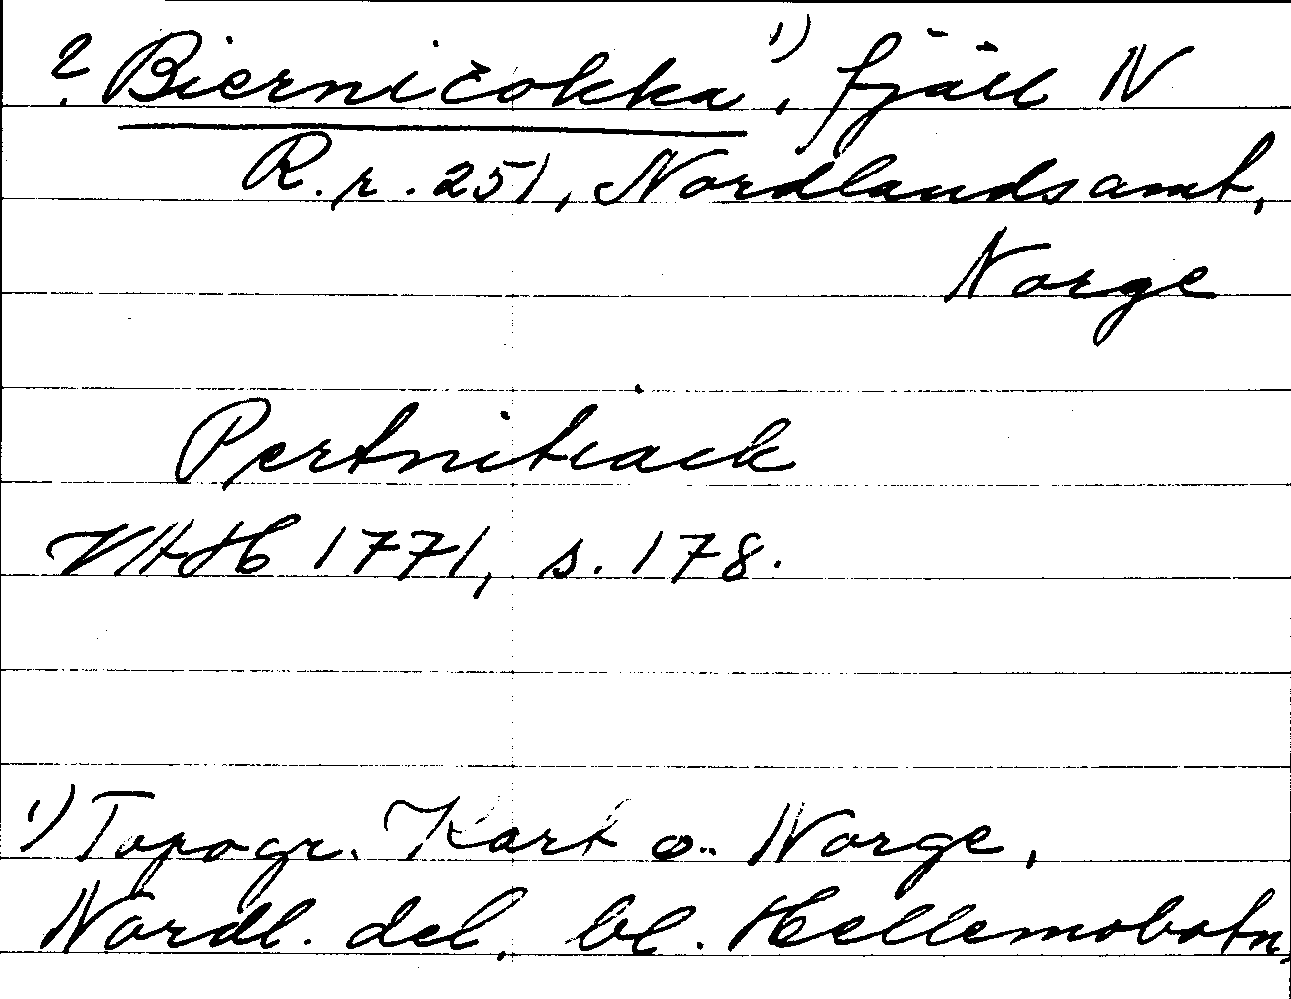 ? Bierničokka ¹), fjäll N
R.r. 251, Nordlandsamt,
Norge
Pertnitiack
VHH 1771, s. 178.
¹) Topogr. Kart ö. Norge,
Nordl. del, bl. Hellemobotn,